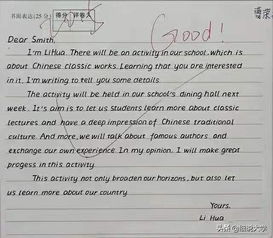 书面表达(25分) 得分 评卷人
Good!
Dear Smith,
I'm LiHua. There will be an activity in our school, which is
about Chinese classic works. Learning that you are interested
in it, I'm writing to tell you some details.
The activity will be held in our school's dining hall next
week. It's aim is to let us students learn more about classic
lectures and have a deep impression of Chinese traditional
culture. And more, we will talk about famous authors and
exchange our own experience. In my opinion, I will make great
progess in this activity.
This activity not only broaden our horizons, but also let
us learn more about our country.
Yours,
Li Hua
头条